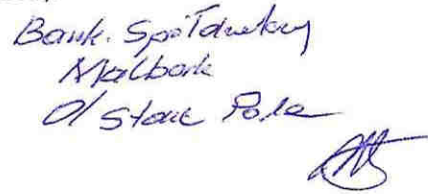 Bank Spółdzielczy
Malbork
O/ Stare Pole